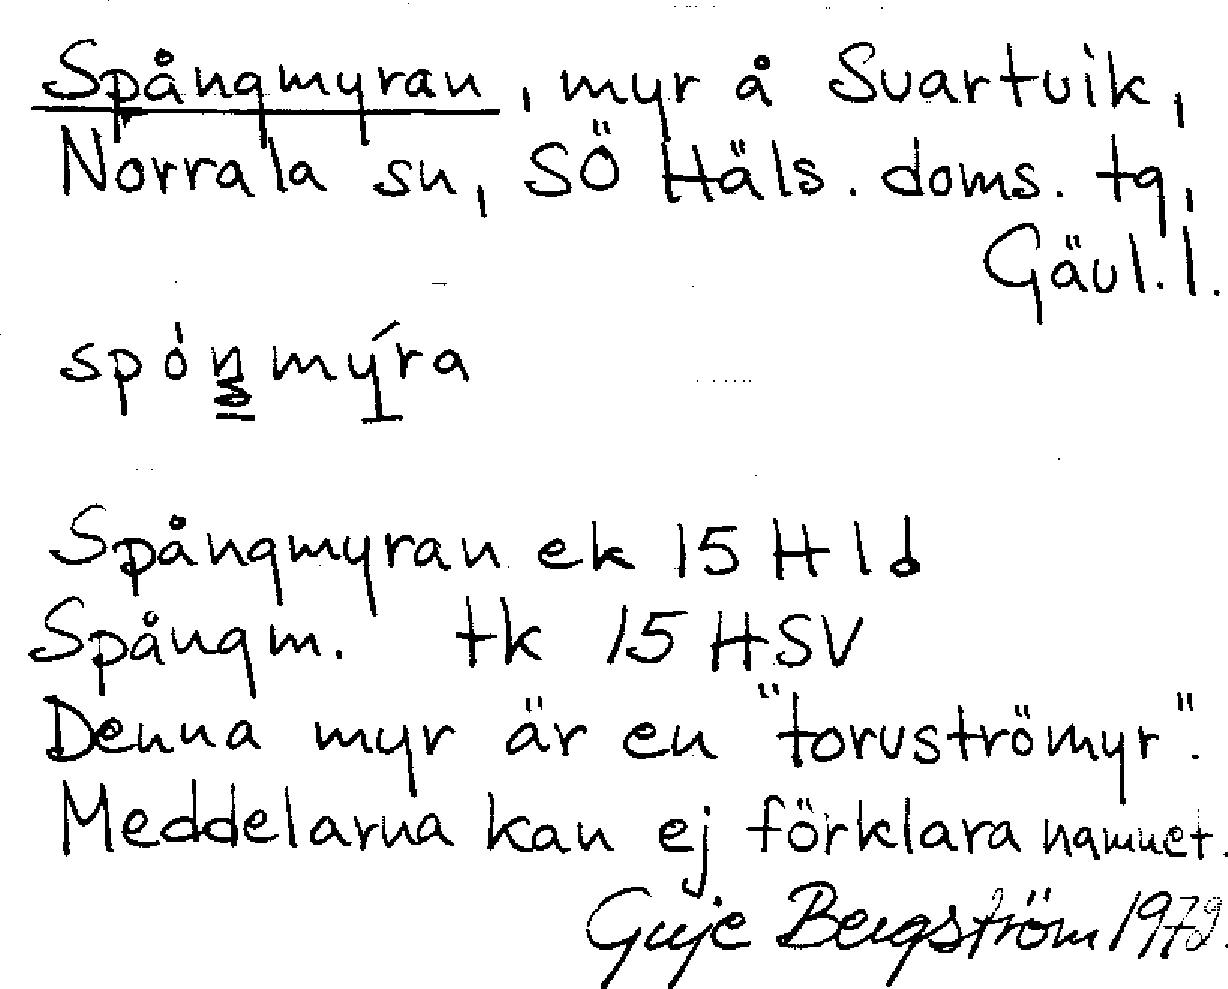 Spångmyran, myr å Svartvik,
Norrala sn, SÖ Häls. doms. tg,
Gävl. l.
spónmýra
Spångmyran ek 15 H 1 d
Spångm. tk 15 HSV
Denna myr är en "torvströmyr".
Meddelarna kan ej förklara namnet.
Guje Bergström 1979.